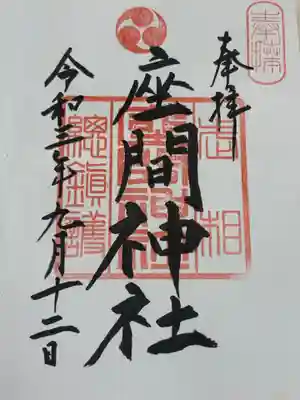 奉拝
座間神社
令和三年九月十二日
相武
總鎮護
座間神社